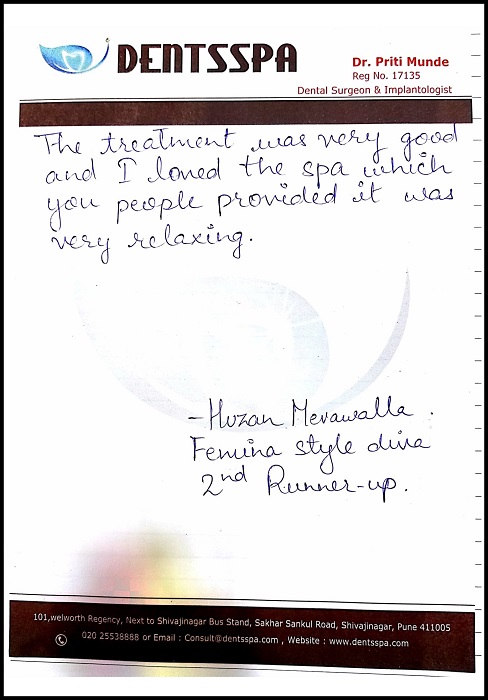 DENTSSPA
Dr. Priti Munde
Reg No. 17135
Dental Surgeon & Implantologist
The treatment was very good
and I loved the spa which
you people provided it was
very relaxing.
- Huzan Mevawalla.
Femina style diva
2nd Runner-up.
101,welworth Regency, Next to Shivajinagar Bus Stand, Sakhar Sankul Road, Shivajinagar, Pune 411005
020 25538888 or Email : Consult@dentsspa.com , Website : www.dentsspa.com